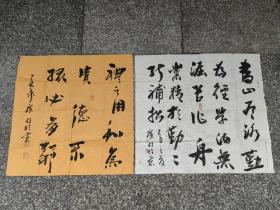 書山有路勤
為徑學海無
涯苦作舟
業精於勤〻
能補拙
禮之用和為
貴德不
孤必有鄰